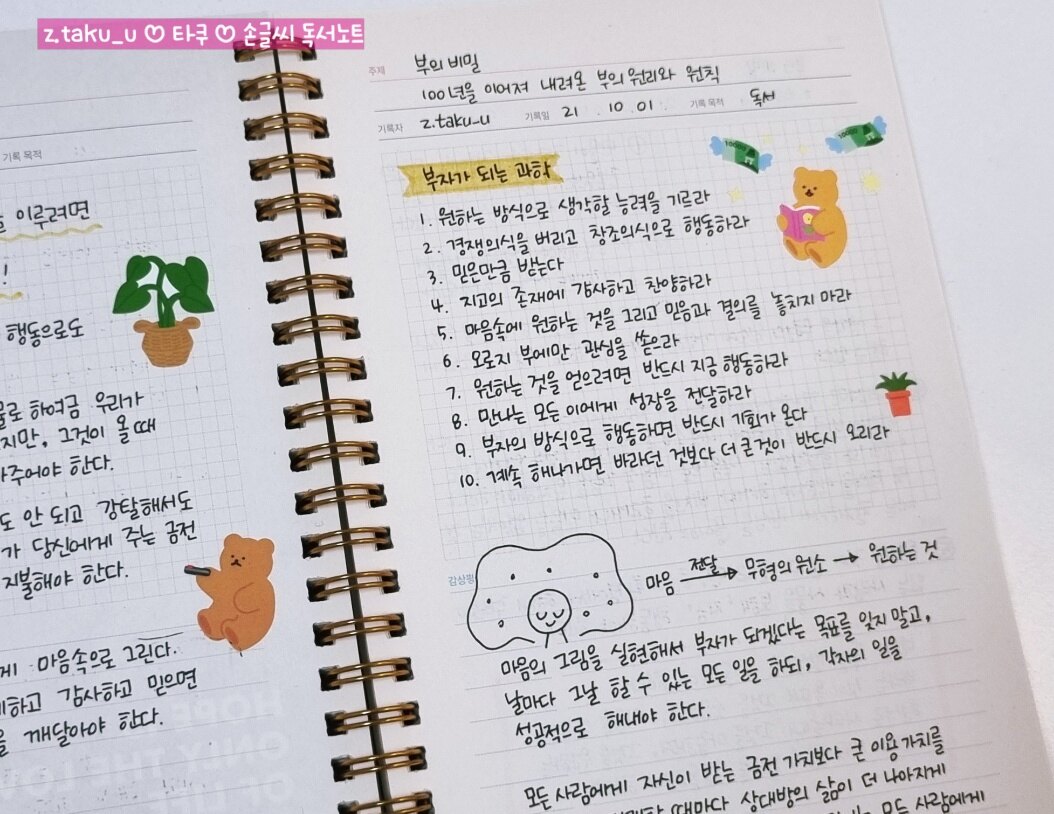 z.taku_u ♡ 타쿠 ♡ 손글씨 독서노트
기록 목적
이루려면
!
행동으로도
하여금 우리가
지만, 그것이 올 때
주어야 한다.
도 안 되고 강탈해서도
가 당신에게 주는 금전
지불해야 한다.
게 마음속으로 그린다.
하고 감사하고 믿으면
을 깨달아야 한다.
주제 부의 비밀
100년을 이어져 내려온 부의 원리와 원칙
기록자 z.taku_u 기록일 21 . 10 . 01 기록 목적 독서
부자가 되는 과학
10000 10000
1. 원하는 방식으로 생각할 능력을 기르라
2. 경쟁의식을 버리고 창조의식으로 행동하라
3. 믿은만큼 받는다
4. 지고의 존재에 감사하고 찬양하라
5. 마음속에 원하는 것을 그리고 믿음과 결의를 놓치지 마라
6. 오로지 부에만 관심을 쏟으라
7. 원하는 것을 얻으려면 반드시 지금 행동하라
8. 만나는 모든 이에게 성장을 전달하라
9. 부자의 방식으로 행동하면 반드시 기회가 온다
10. 계속 해나가면 바라던 것보다 더 큰 것이 반드시 오리라
감상평
마음 전달→ 무형의 원소 → 원하는 것
마음의 그림을 실현해서 부자가 되겠다는 목표를 잊지 말고,
날마다 그날 할 수 있는 모든 일을 하되, 각자의 일을
성공적으로 해내야 한다.
모든 사람에게 자신이 받는 금전 가치보다 큰 이용가치를
때마다 상대방의 삶이 더 나아지게
모든 사람에게